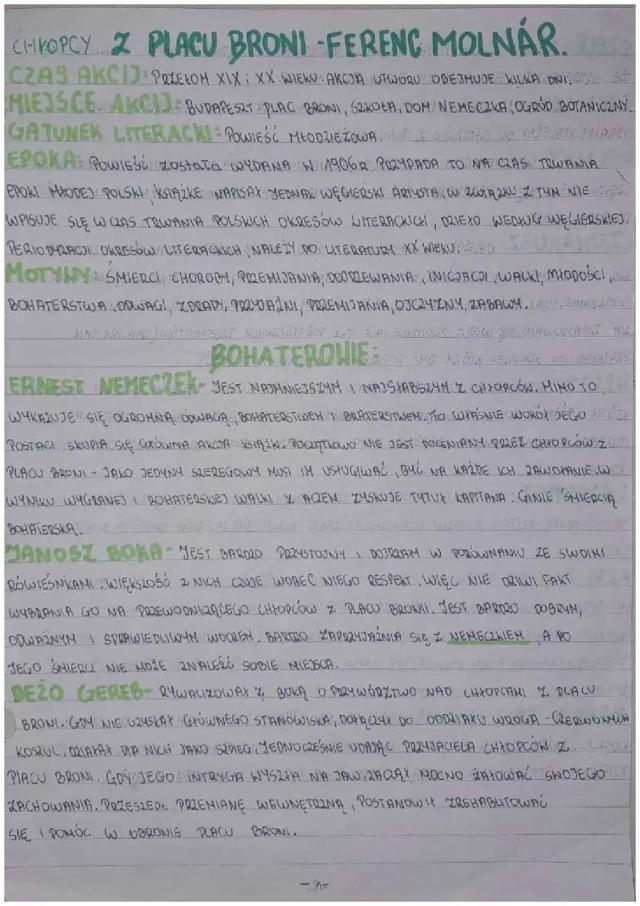 CHŁOPCY Z PLACU BRONI - FERENC MOLNÁR.
CZAS AKCJI: PRZEŁOM XIX i XX WIEKU. AKCJA UTWORU OBEJMUJE KILKA DNI.
MIEJSCE AKCJI: BUDAPESZT: PLAC BRONI, SZKOŁA, DOM NEMECZKA, OGRÓD BOTANICZNY.
GATUNEK LITERACKI: POWIEŚĆ MŁODZIEŻOWA
EPOKA: POWIEŚĆ ZOSTAŁA WYDANA W 1906R. PRZYPADA TO NA CZAS TRWANIA
EPOKI MŁODEJ POLSKI, KSIĄŻKE NAPISAŁ JEDNAK WĘGIERSKI ARTYSTA. W ZWIĄZKU Z TYM NIE
WPISUJE SIĘ W CZAS TRWANIA POLSKICH OKRESÓW LITERACKICH, DZIEŁO WEDŁUG WĘGIERSKIEJ
PERIODYZACJI OKRESÓW LITERACKICH, NALEŻY DO LITERATURY XX WIEKU.
MOTYWY: ŚMIERCI, CHOROBY, PRZEMIJANIA, DOJRZEWANIA, INICJACJI, WALKI, MŁODOŚCI,
BOHATERSTWA, ODWAGI, ZDRADY, PRZYJAŹNI, PRZEMIJANIA, OJCZYZNY, ZABAWY.
BOHATEROWIE:
ERNEST NEMECZEK- JEST NAJMNIEJSZYM I NAJSŁABSZYM Z CHŁOPCÓW. MIMO TO
WYKAZUJE SIĘ OGROMNĄ ODWAGĄ, BOHATERSTWEM I BRATERSTWEM. TO WŁAŚNIE WOKÓŁ JEGO
POSTACI SKUPIA SIĘ GŁÓWNA AKCJA KSIĄŻKI. POCZĄTKOWO NIE JEST DOCENIANY PRZEZ CHŁOPCÓW Z
PLACU BRONI - JAKO JEDYNY SZEREGOWY MUSI IM USŁUGIWAĆ, BYĆ NA KAŻDE ICH ZAWOŁANIE. W
WYNIKU WYGRANEJ I BOHATERSKIEJ WALKI Z ACZEM ZYSKUJE TYTUŁ KAPITANA. GINIE ŚMIERCIĄ
BOHATERSKĄ.
JANOSZ BOKA- JEST BARDZO PRZYSTOJNY I DOJRZAŁY W PORÓWNANIU ZE SWOIMI
RÓWIEŚNIKAMI. WIĘKSZOŚĆ Z NICH CZUJE WOBEC NIEGO RESPEKT, WIĘC NIE DZIWI FAKT
WYBRANIA GO NA PRZEWODNICZĄCEGO CHŁOPCÓW Z PLACU BRONII. JEST BARDZO DOBRYM,
ODWAŻNYM I SPRAWIEDLIWYM WODZEM. BARDZO ZAPRZYJAŹNIA SIĘ Z NEMECZKIEM, A PO
JEGO ŚMIERCI NIE MOŻE ZNALEŹĆ SOBIE MIEJSCA.
DEŻO GEREB- RYWALIZOWAŁ Z BOKĄ O PRZYWÓDZTWO NAD CHŁOPCAMI Z PLACU
BRONI. GDY NIE UZYSKAŁ GŁÓWNEGO STANOWISKA, DOŁĄCZYŁ DO ODDZIAŁU WROGA - CZERWONYCH
KOSZUL. DZIAŁAŁ DLA NICH JAKO SZPIEG, JEDNOCZEŚNIE UDAJĄC PRZYJACIELA CHŁOPCÓW Z
PLACU BRONI. GDY JEGO INTRYGA WYSZŁA NA JAW, ZACZĄŁ MOCNO ŻAŁOWAĆ SWOJEGO
ZACHOWANIA. PRZESZEDŁ PRZEMIANĘ WEWNĘTRZNĄ, POSTANOWIŁ ZREHABILITOWAĆ
SIĘ I POMÓC W OBRONIE PLACU BRONI.